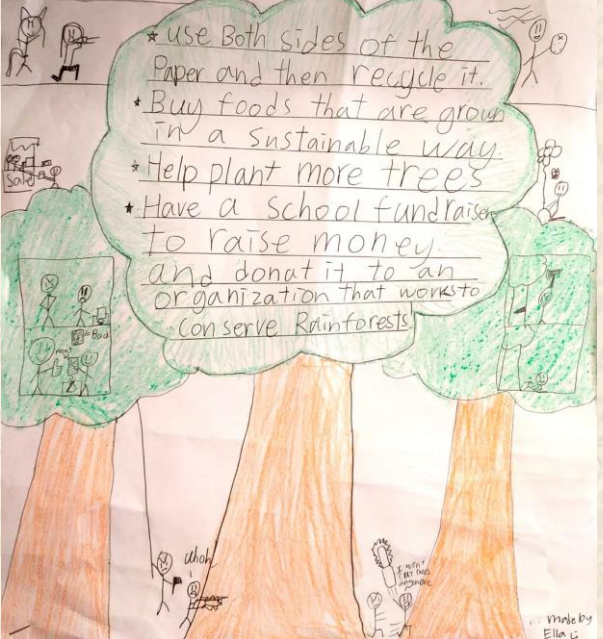 ★ use Both sides of the
Paper and then recycle it.
★ Buy foods that are grown
in a sustainable way.
★ Help plant more trees
★ Have a school fundraiser
to raise money
and donat it to an
organization that works to
conserve Rainforests.
Sale
Bad
whoh
I won't
cut trees
anymore
made by
Ella